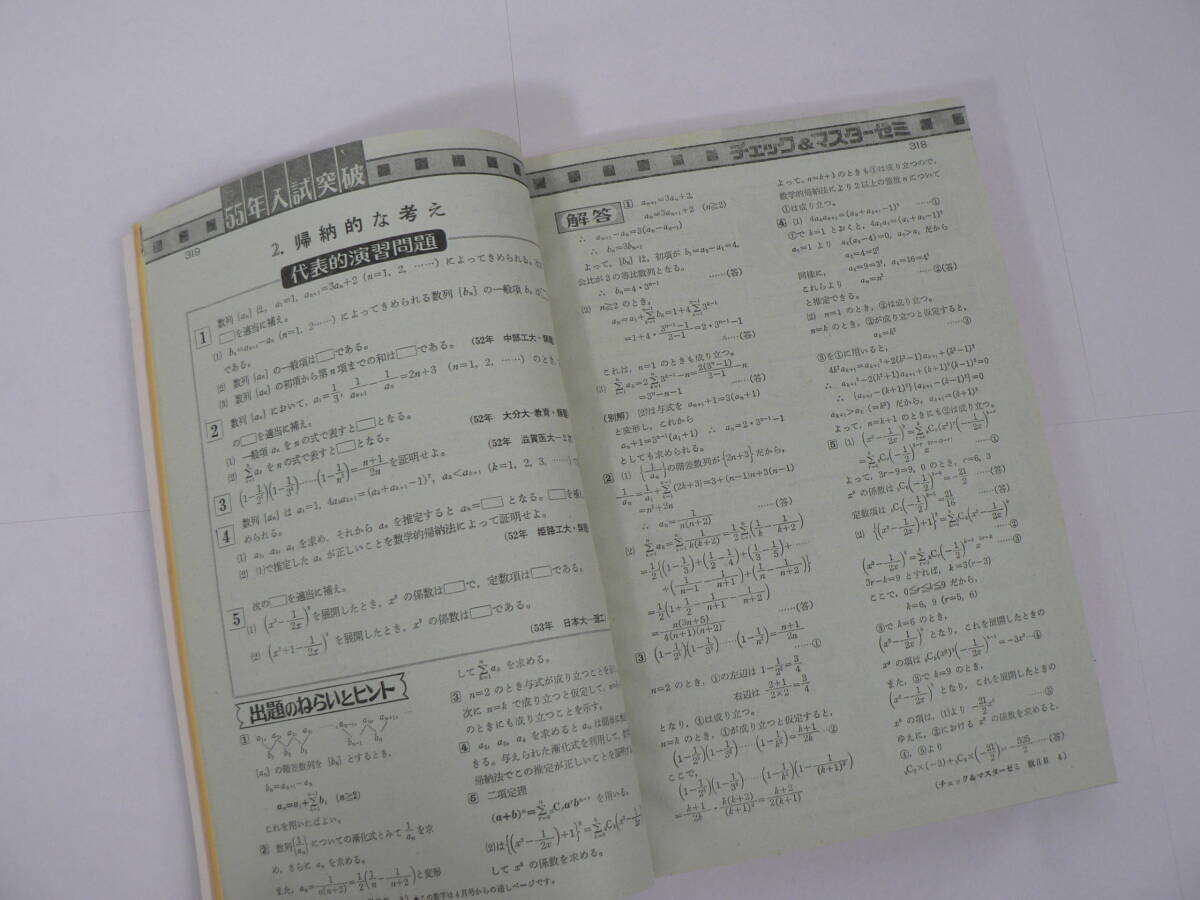 55年入試突破
319
2. 帰納的な考え
代表的演習問題
1 数列 {aₙ} は, a₁=1, aₙ₊₁=3aₙ+2 (n=1, 2, ……) によってきめられる。
□を適当に補え。
(1) bₙ=aₙ₊₁−aₙ (n=1, 2……) によってきめられる数列 {bₙ} の一般項 bₙ は
である。
(2) 数列 {aₙ} の一般項は□である。
(3) 数列 {aₙ} の初項から第 n 項までの和は□である。 (52年 中部工大・
2 数列 {aₙ} において, a₁=1/3, 1/aₙ₊₁−1/aₙ=2n+3 (n=1, 2, ……) のとき,
の□を適当に補え。
(1) 一般項 aₙ を n の式で表すと□となる。
(2) Σaᵢ を n の式で表すと□となる。 (52年 大分大・教育・
3 (1−1/2²)(1−1/3²)……(1−1/n²)=(n+1)/2n を証明せよ。 (52年 滋賀医大−2
4 数列 {aₙ} は a₁=1, 4aₖaₖ₊₁=(aₖ+aₖ₊₁−1)², aₖ<aₖ₊₁ (k=1, 2, 3, ……) で
められる。
(1) a₂, a₃, a₄ を求め, それから aₙ を推定すると aₙ=□ となる。
(2) (1)で推定した aₙ が正しいことを数学的帰納法によって証明せよ。
(52年 姫路工大・
5 次の□を適当に補え。
(1) (x²−1/2x)⁹ を展開したとき, x⁹ の係数は□で, 定数項は□である。
(2) (x²+1−1/2x)⁹ を展開したとき, x⁹ の係数は□である。
(53年 日本大−
出題のねらいとヒント
1 a₁, a₂, a₃, a₄, ……aₙ₋₁, aₙ, aₙ₊₁…
b₁ b₂ b₃ bₙ₋₁ bₙ
{aₙ} の階差数列を {bₙ} とするとき,
bₙ=aₙ₊₁−aₙ
aₙ=a₁+Σbᵢ (n≧2)
これを用いればよい。
2 数列{1/aₙ} についての漸化式とみて 1/aₙ を求
め, さらに aₙ を求める。
また, aₙ=1/n(n+2)=1/2(1/n−1/(n+2)) と変形
して Σaᵢ を求める。
3 n=2 のとき与式が成り立つことを
次に n=k で成り立つと仮定して,
のときにも成り立つことを示す。
4 a₂, a₃, a₄ を求めると aₙ は簡単に
きる。与えられた漸化式を利用して,
帰納法でこの推定が正しいことを証明
5 二項定理
(a+b)ⁿ=Σ ₙCᵣaʳbⁿ⁻ʳ を用いる。
(2)は{(x²−1/2x)+1}⁹=Σ₉Cₖ(x²−1/2x
して x⁹ の係数を求める。
★この数字は4月号からの通しページです。
チェック&マスターゼミ
318
解答
1 aₙ₊₁=3aₙ+2,
aₙ=3aₙ₋₁+2 (n≧2)
∴ aₙ₊₁−aₙ=3(aₙ−aₙ₋₁)
∴ bₙ=3bₙ₋₁
よって, {bₙ} は, 初項が b₁=a₂−a₁=4,
公比が3の等比数列となる。
∴ bₙ=4・3ⁿ⁻¹ ……(答)
(2) n≧2 のとき,
aₙ=a₁+Σbᵢ=1+4Σ3ᵏ⁻¹
=1+4・(3ⁿ⁻¹−1)/(3−1)=2・3ⁿ⁻¹−1
……(答)
これは, n=1 のときも成り立つ。
(3) Σaₖ=2Σ3ᵏ⁻¹−n=2(3ⁿ−1)/(3−1)−n
=3ⁿ−n−1 ……(答)
(別解) (2)は与式を aₙ₊₁+1=3(aₙ+1)
と変形し, これから
aₙ+1=3ⁿ⁻¹(a₁+1) ∴ aₙ=2・3ⁿ⁻¹−1
としても求められる。
2 (1) {1/aₙ} の階差数列が {2n+3} だから,
1/aₙ=1/a₁+Σ(2k+3)=3+(n−1)n+3(n−1)
=n²+2n
∴ aₙ=1/n(n+2) ……(答)
(2) Σaₖ=Σ1/k(k+2)=1/2Σ(1/k−1/(k+2))
=1/2{(1−1/3)+(1/2−1/4)+(1/3−1/5)+……
+(1/(n−1)−1/(n+1))+(1/n−1/(n+2))}
=1/2(1+1/2−1/(n+1)−1/(n+2))
=n(3n+5)/4(n+1)(n+2) ……(答)
3 (1−1/2²)(1−1/3²)……(1−1/n²)=(n+1)/2n
……①
n=2 のとき, ①の左辺は 1−1/2²=3/4
右辺は (2+1)/(2×2)=3/4
となり, ①は成り立つ。
n=k のとき, ①が成り立つと仮定すると,
(1−1/2²)(1−1/3²)……(1−1/k²)=(k+1)/2k …②
ここで,
(1−1/2²)(1−1/3²)……(1−1/k²)(1−1/(k+1)²)
=(k+1)/2k・k(k+2)/(k+1)²=(k+2)/2(k+1)
よって, n=k+1 のときも①は成り立つので,
数学的帰納法により2以上の整数 n について
①は成り立つ。
4 (1) 4aₖaₖ₊₁=(aₖ+aₖ₊₁−1)² ……①
①で k=1 とおくと, 4a₁a₂=(a₁+a₂−1)²
a₁=1 より a₂(a₂−4)=0, a₂>a₁ だから
a₂=4=2²
同様に, a₃=9=3², a₄=16=4²
これらより aₙ=n² ……②(答)
と推定できる。
(2) n=1 のとき, ②は成り立つ。
n=k のとき, ②が成り立つと仮定すると,
aₖ=k² ……③
③を①に用いると,
4k²aₖ₊₁=aₖ₊₁²+2(k²−1)aₖ₊₁+(k²−1)²
∴ aₖ₊₁²−2(k²+1)aₖ₊₁+(k+1)²(k−1)²=0
∴ {aₖ₊₁−(k+1)²}{aₖ₊₁−(k−1)²}=0
aₖ₊₁>aₖ (=k²) だから, aₖ₊₁=(k+1)²
よって, n=k+1 のときにも②は成り立つ。
5 (1) (x²−1/2x)⁹=Σ₉Cᵣ(x²)ʳ(−1/2x)⁹⁻ʳ
=Σ₉Cᵣ(−1/2)⁹⁻ʳx³ʳ⁻⁹ ……①
よって, 3r−9=9, 0 のとき, r=6, 3
x⁹ の係数は ₉C₆(−1/2)³=−21/2 ……(答)
定数項は ₉C₃(−1/2)⁶=21/16 ……(答)
(2) {(x²−1/2x)+1}⁹=Σ₉Cₖ(x²−1/2x)ᵏ
……②
(x²−1/2x)ᵏ=ΣₖCᵣ(−1/2)ᵏ⁻ʳx³ʳ⁻ᵏ ……③
3r−k=9 とすれば, k=3(r−3)
ここで, 0≦r≦k≦9 だから,
k=6, 9 (r=5, 6)
③で k=6 のとき,
(x²−1/2x)⁶ となり, これを展開したときの
x⁹ の項は ₆C₅(x²)⁵(−1/2x)⁶⁻⁵=−3x⁹…④
また, ③で k=9 のとき,
(x²−1/2x)⁹ となり, これを展開したときの
x⁹ の項は, (1)より −21/2x⁹ ……⑤
ゆえに, ②における x⁹ の係数を求めると,
④, ⑤より
₉C₆×(−3)+₉C₉×(−21/2)=−525/2 ……(答)
(チェック&マスターゼミ 数ⅡB 4)